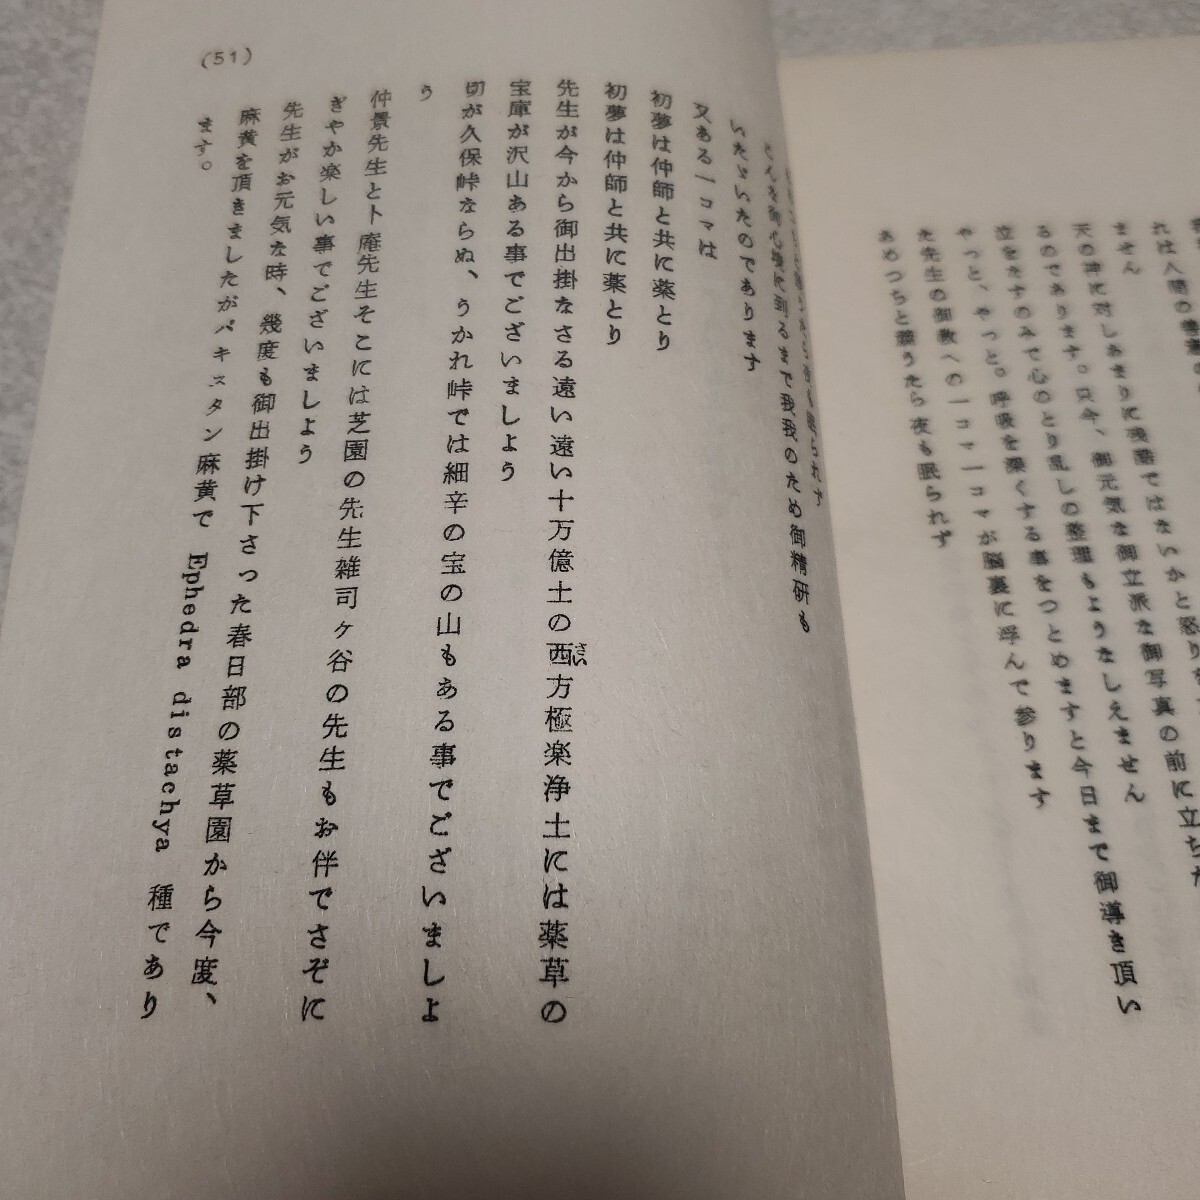 れは人間の
ません
天の神に対しあまりに残酷ではないかと怒り
るのであります。只今、御元気な御立派な御写真の前に立ち
立をなすのみで心のとり乱しの整理もようなしえません
やっと、やっと。呼吸を深くする事をつとめますと今日まで御導き頂い
た先生の御教への一コマ一コマが脳裏に浮んで参ります
あめつちと覆うたら夜も眠られず
眠られず
御心境に到るまで我我のため御精研も
いたゞいたのであります
又ある一コマは
初夢は仲師と共に薬とり
初夢は仲師と共に薬とり
先生が今から御出掛なさる遠い遠い十万億土の西方極楽浄土には薬草の
さい
宝庫が沢山ある事でございましよう
切が久保峠ならぬ、うかれ峠では細辛の宝の山もある事でございましよ
う
仲景先生と卜庵先生そこには芝園の先生雑司ヶ谷の先生もお伴でさぞに
ぎやか楽しい事でございましよう
先生がお元気な時、幾度も御出掛け下さった春日部の薬草園から今度、
麻黄を頂きましたがパキスタン麻黄で Ephedra distachya 種であり
ます。
(51)